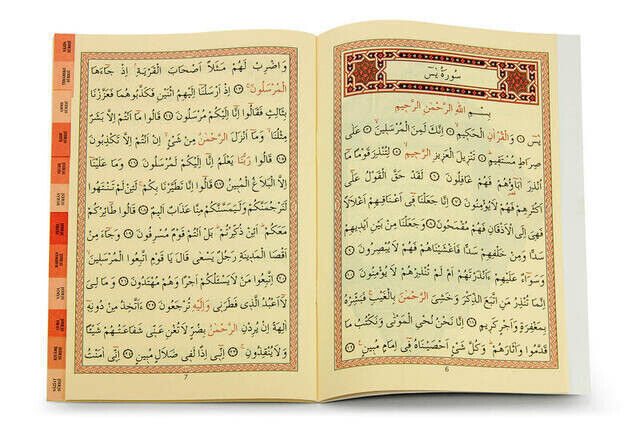 سُورَةُ يٰسٓ
بِسْمِ اللهِ الرَّحْمٰنِ الرَّحِيمِ
يٰسٓ ۝١ وَالْقُرْاٰنِ الْحَكِيمِ ۝٢ اِنَّكَ لَمِنَ الْمُرْسَلِينَ ۝٣ عَلٰى
صِرَاطٍ مُسْتَقِيمٍ ۝٤ تَنْزِيلَ الْعَزِيزِ الرَّحِيمِ ۝٥ لِتُنْذِرَ قَوْمًا مَا
اُنْذِرَ اٰبَاؤُهُمْ فَهُمْ غَافِلُونَ ۝٦ لَقَدْ حَقَّ الْقَوْلُ عَلٰى
اَكْثَرِهِمْ فَهُمْ لَا يُؤْمِنُونَ ۝٧ اِنَّا جَعَلْنَا فِي اَعْنَاقِهِمْ اَغْلَالًا
فَهِيَ اِلَى الْاَذْقَانِ فَهُمْ مُقْمَحُونَ ۝٨ وَجَعَلْنَا مِنْ بَيْنِ اَيْدِيهِمْ
سَدًّا وَمِنْ خَلْفِهِمْ سَدًّا فَاَغْشَيْنَاهُمْ فَهُمْ لَا يُبْصِرُونَ ۝٩
وَسَوَاءٌ عَلَيْهِمْ ءَاَنْذَرْتَهُمْ اَمْ لَمْ تُنْذِرْهُمْ لَا يُؤْمِنُونَ ۝١٠
اِنَّمَا تُنْذِرُ مَنِ اتَّبَعَ الذِّكْرَ وَخَشِيَ الرَّحْمٰنَ بِالْغَيْبِ فَبَشِّرْهُ
بِمَغْفِرَةٍ وَاَجْرٍ كَرِيمٍ ۝١١ اِنَّا نَحْنُ نُحْيِ الْمَوْتٰى وَنَكْتُبُ مَا
قَدَّمُوا وَاٰثَارَهُمْ وَكُلَّ شَيْءٍ اَحْصَيْنَاهُ فِي اِمَامٍ مُبِينٍ ۝١٢
6
وَاضْرِبْ لَهُمْ مَثَلًا اَصْحَابَ الْقَرْيَةِ اِذْ جَاءَهَا
الْمُرْسَلُونَ ۝١٣ اِذْ اَرْسَلْنَا اِلَيْهِمُ اثْنَيْنِ فَكَذَّبُوهُمَا فَعَزَّزْنَا
بِثَالِثٍ فَقَالُوا اِنَّا اِلَيْكُمْ مُرْسَلُونَ ۝١٤ قَالُوا مَا اَنْتُمْ اِلَّا بَشَرٌ
مِثْلُنَا وَمَا اَنْزَلَ الرَّحْمٰنُ مِنْ شَيْءٍ اِنْ اَنْتُمْ اِلَّا تَكْذِبُونَ
۝١٥ قَالُوا رَبُّنَا يَعْلَمُ اِنَّا اِلَيْكُمْ لَمُرْسَلُونَ ۝١٦ وَمَا عَلَيْنَا
اِلَّا الْبَلَاغُ الْمُبِينُ ۝١٧ قَالُوا اِنَّا تَطَيَّرْنَا بِكُمْ لَئِنْ لَمْ تَنْتَهُوا
لَنَرْجُمَنَّكُمْ وَلَيَمَسَّنَّكُمْ مِنَّا عَذَابٌ اَلِيمٌ ۝١٨ قَالُوا طَائِرُكُمْ
مَعَكُمْ اَئِنْ ذُكِّرْتُمْ بَلْ اَنْتُمْ قَوْمٌ مُسْرِفُونَ ۝١٩ وَجَاءَ مِنْ
اَقْصَا الْمَدِينَةِ رَجُلٌ يَسْعٰى قَالَ يَا قَوْمِ اتَّبِعُوا الْمُرْسَلِينَ
۝٢٠ اِتَّبِعُوا مَنْ لَا يَسْئَلُكُمْ اَجْرًا وَهُمْ مُهْتَدُونَ ۝٢١ وَمَا لِيَ
لَا اَعْبُدُ الَّذِي فَطَرَنِي وَاِلَيْهِ تُرْجَعُونَ ۝٢٢ ءَاَتَّخِذُ مِنْ دُونِهِ
اٰلِهَةً اِنْ يُرِدْنِ الرَّحْمٰنُ بِضُرٍّ لَا تُغْنِ عَنِّي شَفَاعَتُهُمْ شَيْئًا
وَلَا يُنْقِذُونِ ۝٢٣ اِنِّي اِذًا لَفِي ضَلَالٍ مُبِينٍ ۝٢٤ اِنِّي اٰمَنْتُ
7